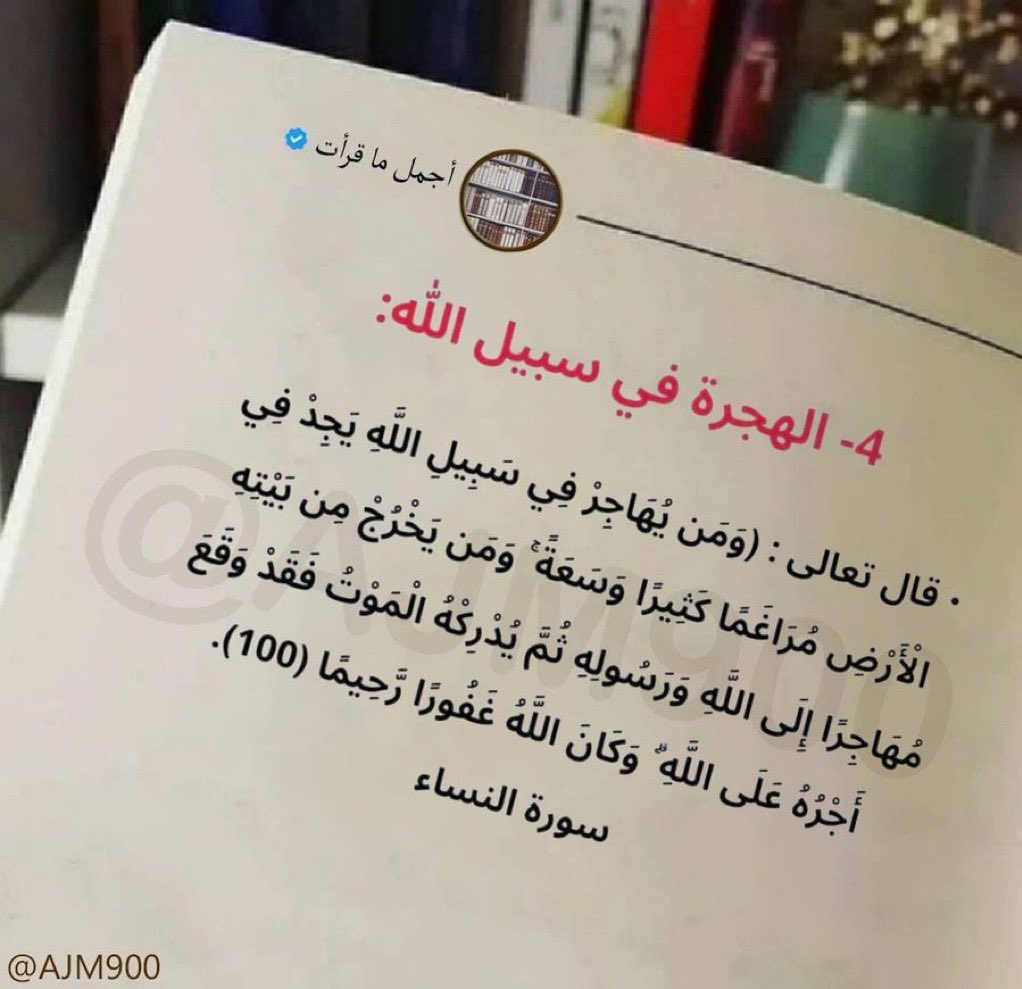 أجمل ما قرأت
4- الهجرة في سبيل الله:
• قال تعالى : (وَمَن يُهَاجِرْ فِي سَبِيلِ اللَّهِ يَجِدْ فِي
الْأَرْضِ مُرَاغَمًا كَثِيرًا وَسَعَةً ۚ وَمَن يَخْرُجْ مِن بَيْتِهِ
مُهَاجِرًا إِلَى اللَّهِ وَرَسُولِهِ ثُمَّ يُدْرِكْهُ الْمَوْتُ فَقَدْ وَقَعَ
أَجْرُهُ عَلَى اللَّهِ ۗ وَكَانَ اللَّهُ غَفُورًا رَّحِيمًا (100).
سورة النساء
@AJM900
@AJM900